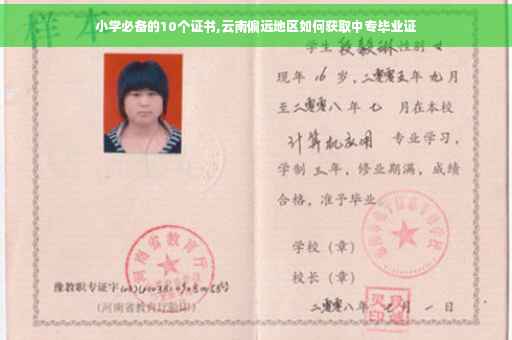 小学必备的10个证书,云南偏远地区如何获取中专毕业证
样本
学生 段毅琳 性别 女
现年 16 岁,二零零五年 九月
至二零零八年 七 月在本校
计算机应用 专业学习,
学制 三 年,修业期满,成绩
合格,准予毕业
学校(章)
校长(章)
二零零八年 七 月 一 日
河南省教育厅
豫教职专证字
(河南省教育厅验印)